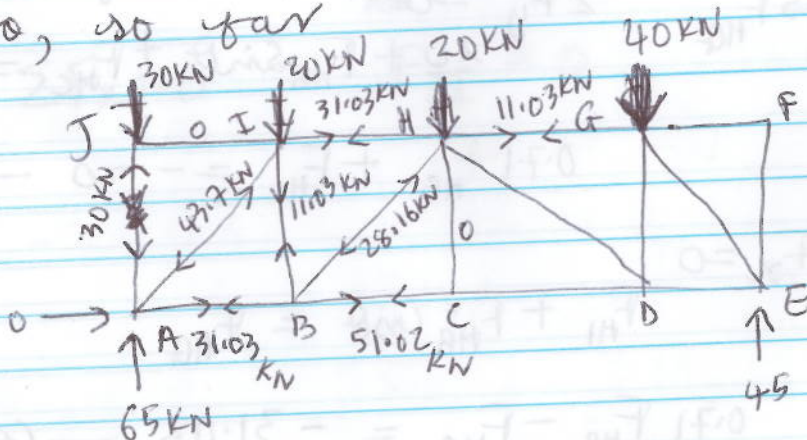 so far
30KN 20KN 20KN 40KN
J 0 I 31.03KN H 11.03KN G F
30KN 43.7KN 11.03KN 28.16KN 0
0 A B C D E
31.03 KN 51.02 KN
65KN 45
0.71